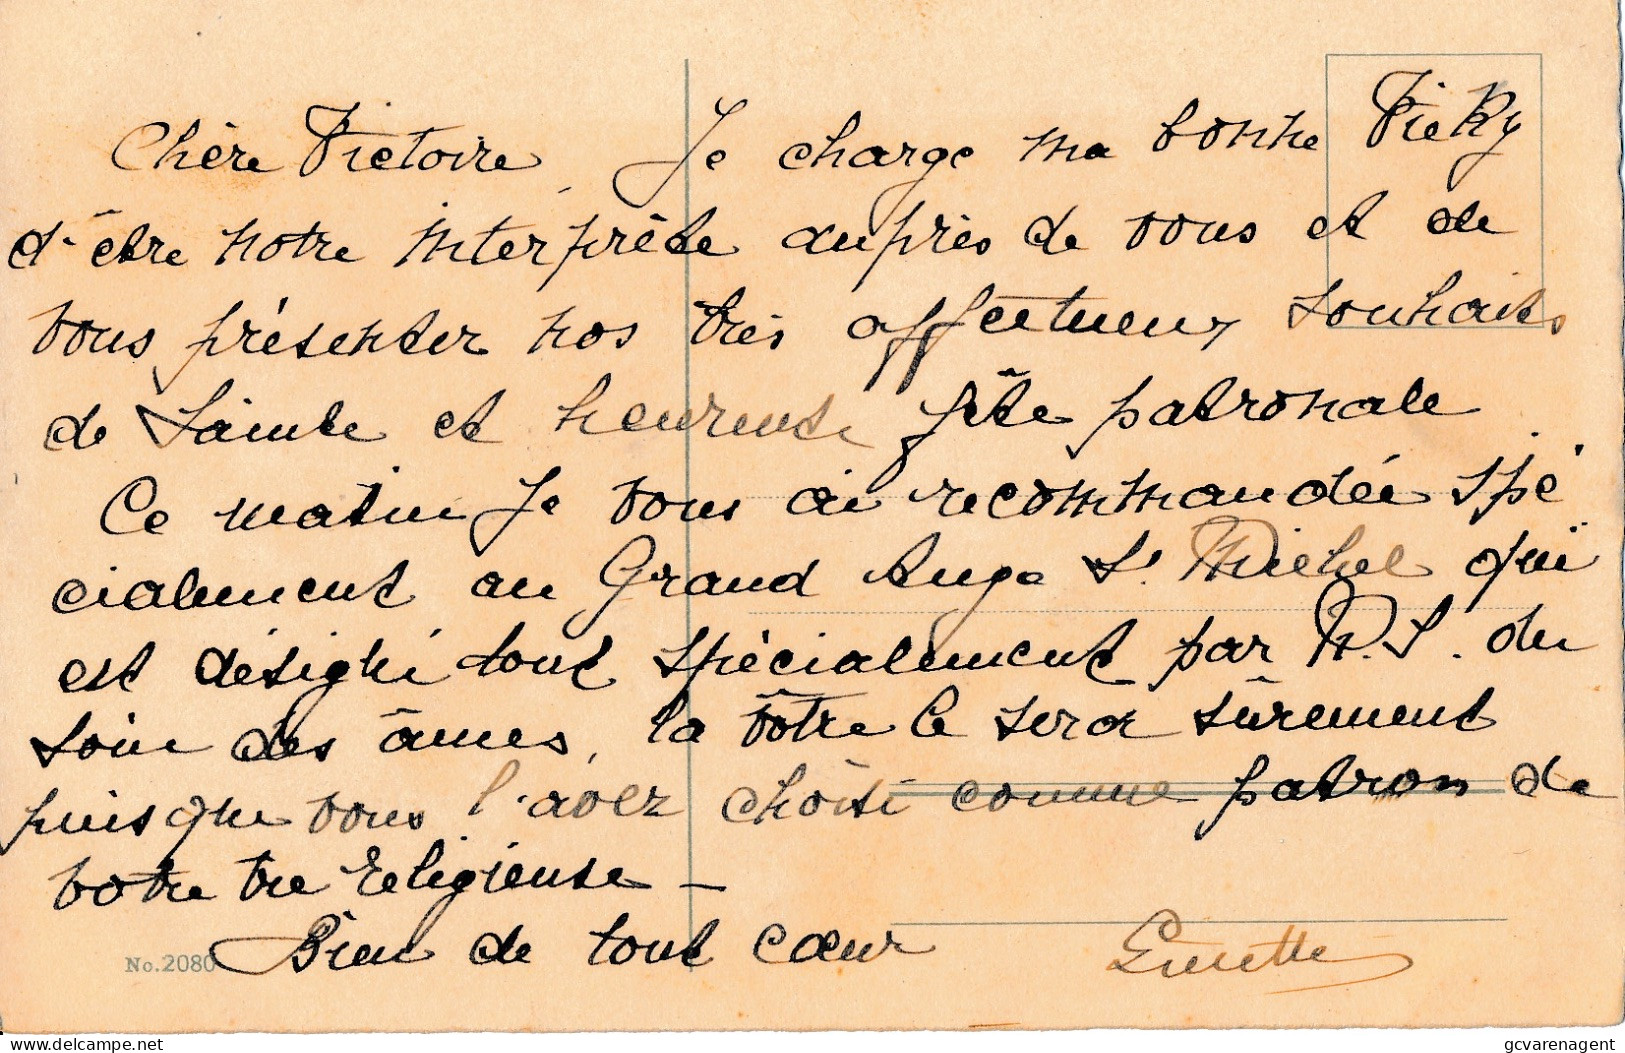 Chère Victoire, Je charge ma bonne Vicky
d'être notre interprète auprès de vous et de
vous présenter nos très affectueux souhaits
de sainte et heureuse fête patronale
Ce matin je vous ai recommandée spé
cialement au Grand Ange St Michel qui
est désigné tout spécialement par N. S. du
soin des âmes, la vôtre le sera sûrement
puisque vous l'avez choisi comme patron de
votre vie religieuse –
Bien de tout cœur
No. 2080
delcampe.net
gcvarenagent